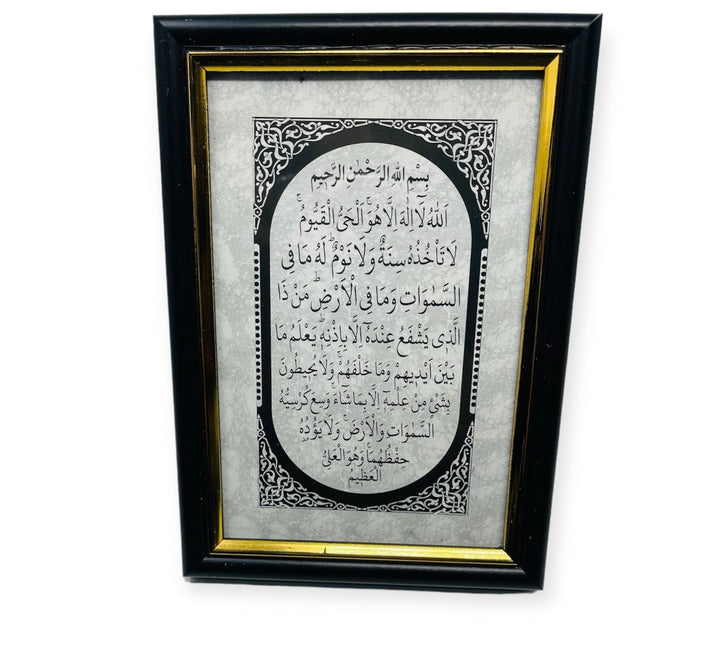 بِسْمِ اللهِ الرَّحْمٰنِ الرَّحِيْمِ
اَللهُ لَٓا اِلٰهَ اِلَّا هُوَۚ اَلْحَيُّ الْقَيُّومُۚ
لَا تَأْخُذُهُ سِنَةٌ وَلَا نَوْمٌۜ لَهُ مَا فِى
السَّمٰوَاتِ وَمَا فِى الْاَرْضِۜ مَنْ ذَا
الَّذٖى يَشْفَعُ عِنْدَهُٓ اِلَّا بِاِذْنِهٖۜ يَعْلَمُ مَا
بَيْنَ اَيْدٖيهِمْ وَمَا خَلْفَهُمْۚ وَلَا يُحٖيطُونَ
بِشَىْءٍ مِنْ عِلْمِهٖٓ اِلَّا بِمَا شَٓاءَۚ وَسِعَ كُرْسِيُّهُ
السَّمٰوَاتِ وَالْاَرْضَۚ وَلَا يَؤُدُهُ
حِفْظُهُمَاۚ وَهُوَ الْعَلِىُّ
الْعَظٖيمُ